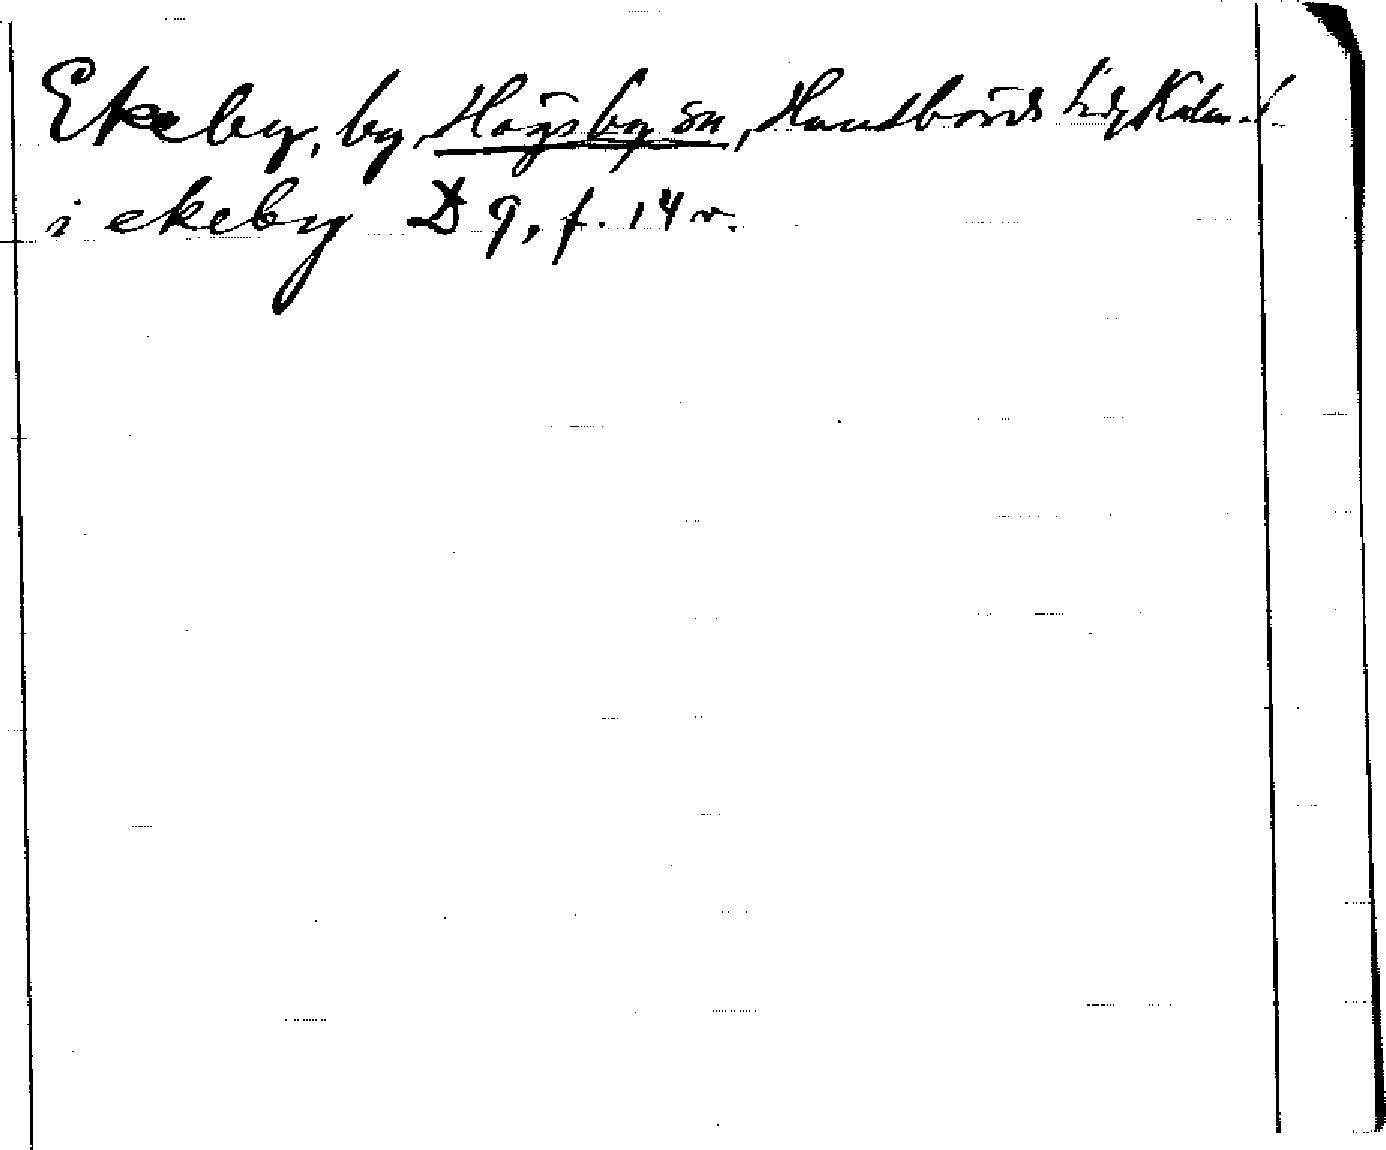 Ekeby, by, Högsby sn, Handbörds hd, Kalm. l.
i ekeby D 9, f. 14 v.